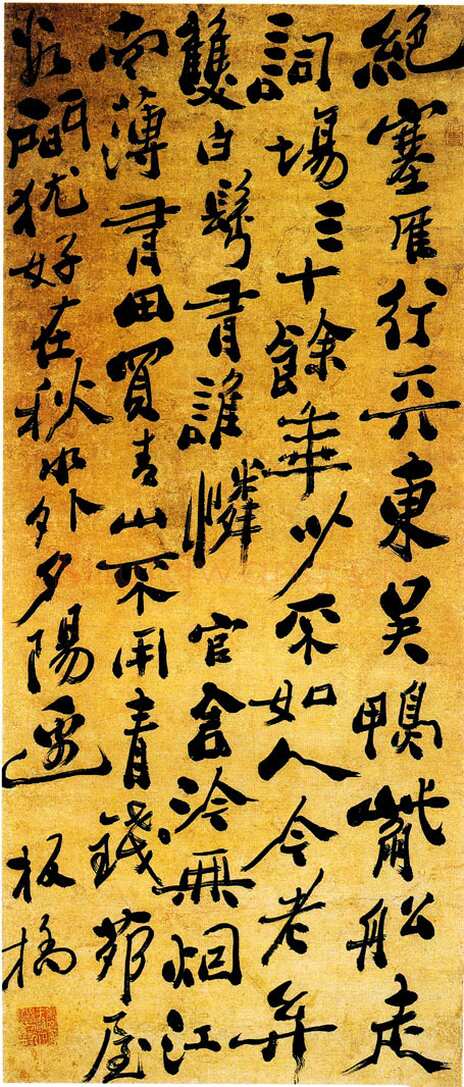 絕塞雁行天東吳鴨觜船走
詞場三十餘年少不如人今老矣
雙白鬢有誰憐官舍冷無烟江
南薄有田買青山不用青錢茆屋
数間犹好在秋水外夕陽邊
板橋